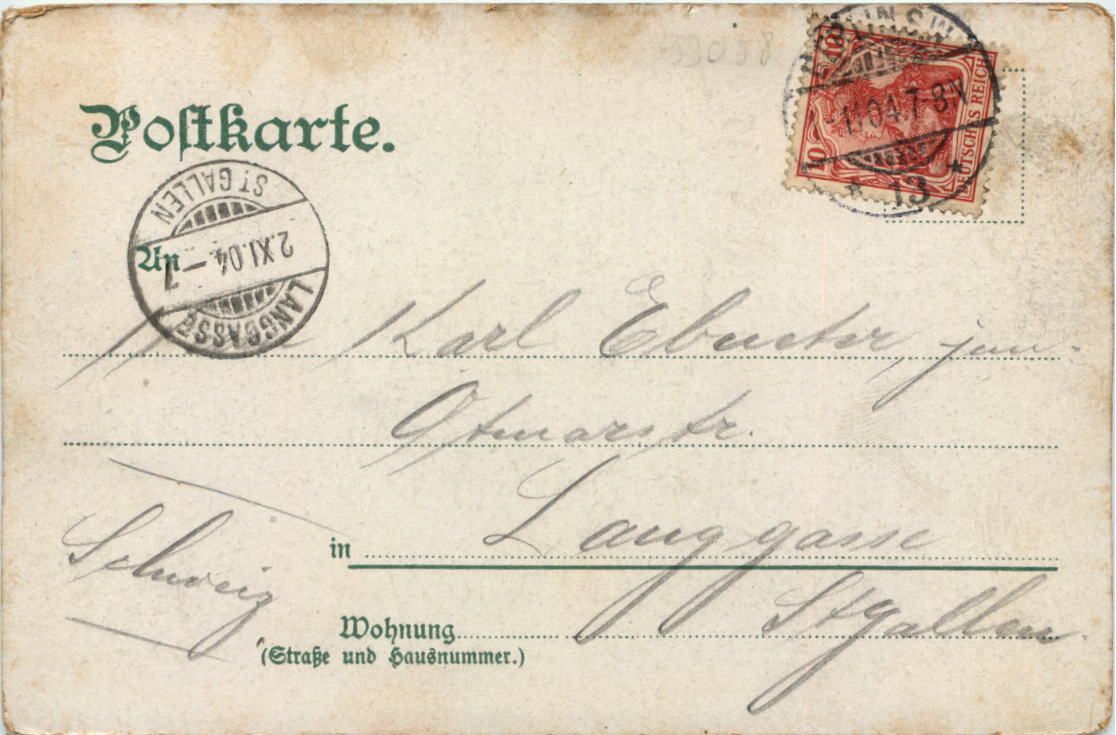 BERLIN S.W.
-1.11.04.7-8N.
* 13 *
10 10
DEUTSCHES REICH
Postkarte.
ST GALLEN
2.XI.04.–7
LANGGASSE
An
Karl Ebneter jun.
Otmarstr.
in Langgasse
Schweiz
St Gallen.
Wohnung
(Straße und Hausnummer.)